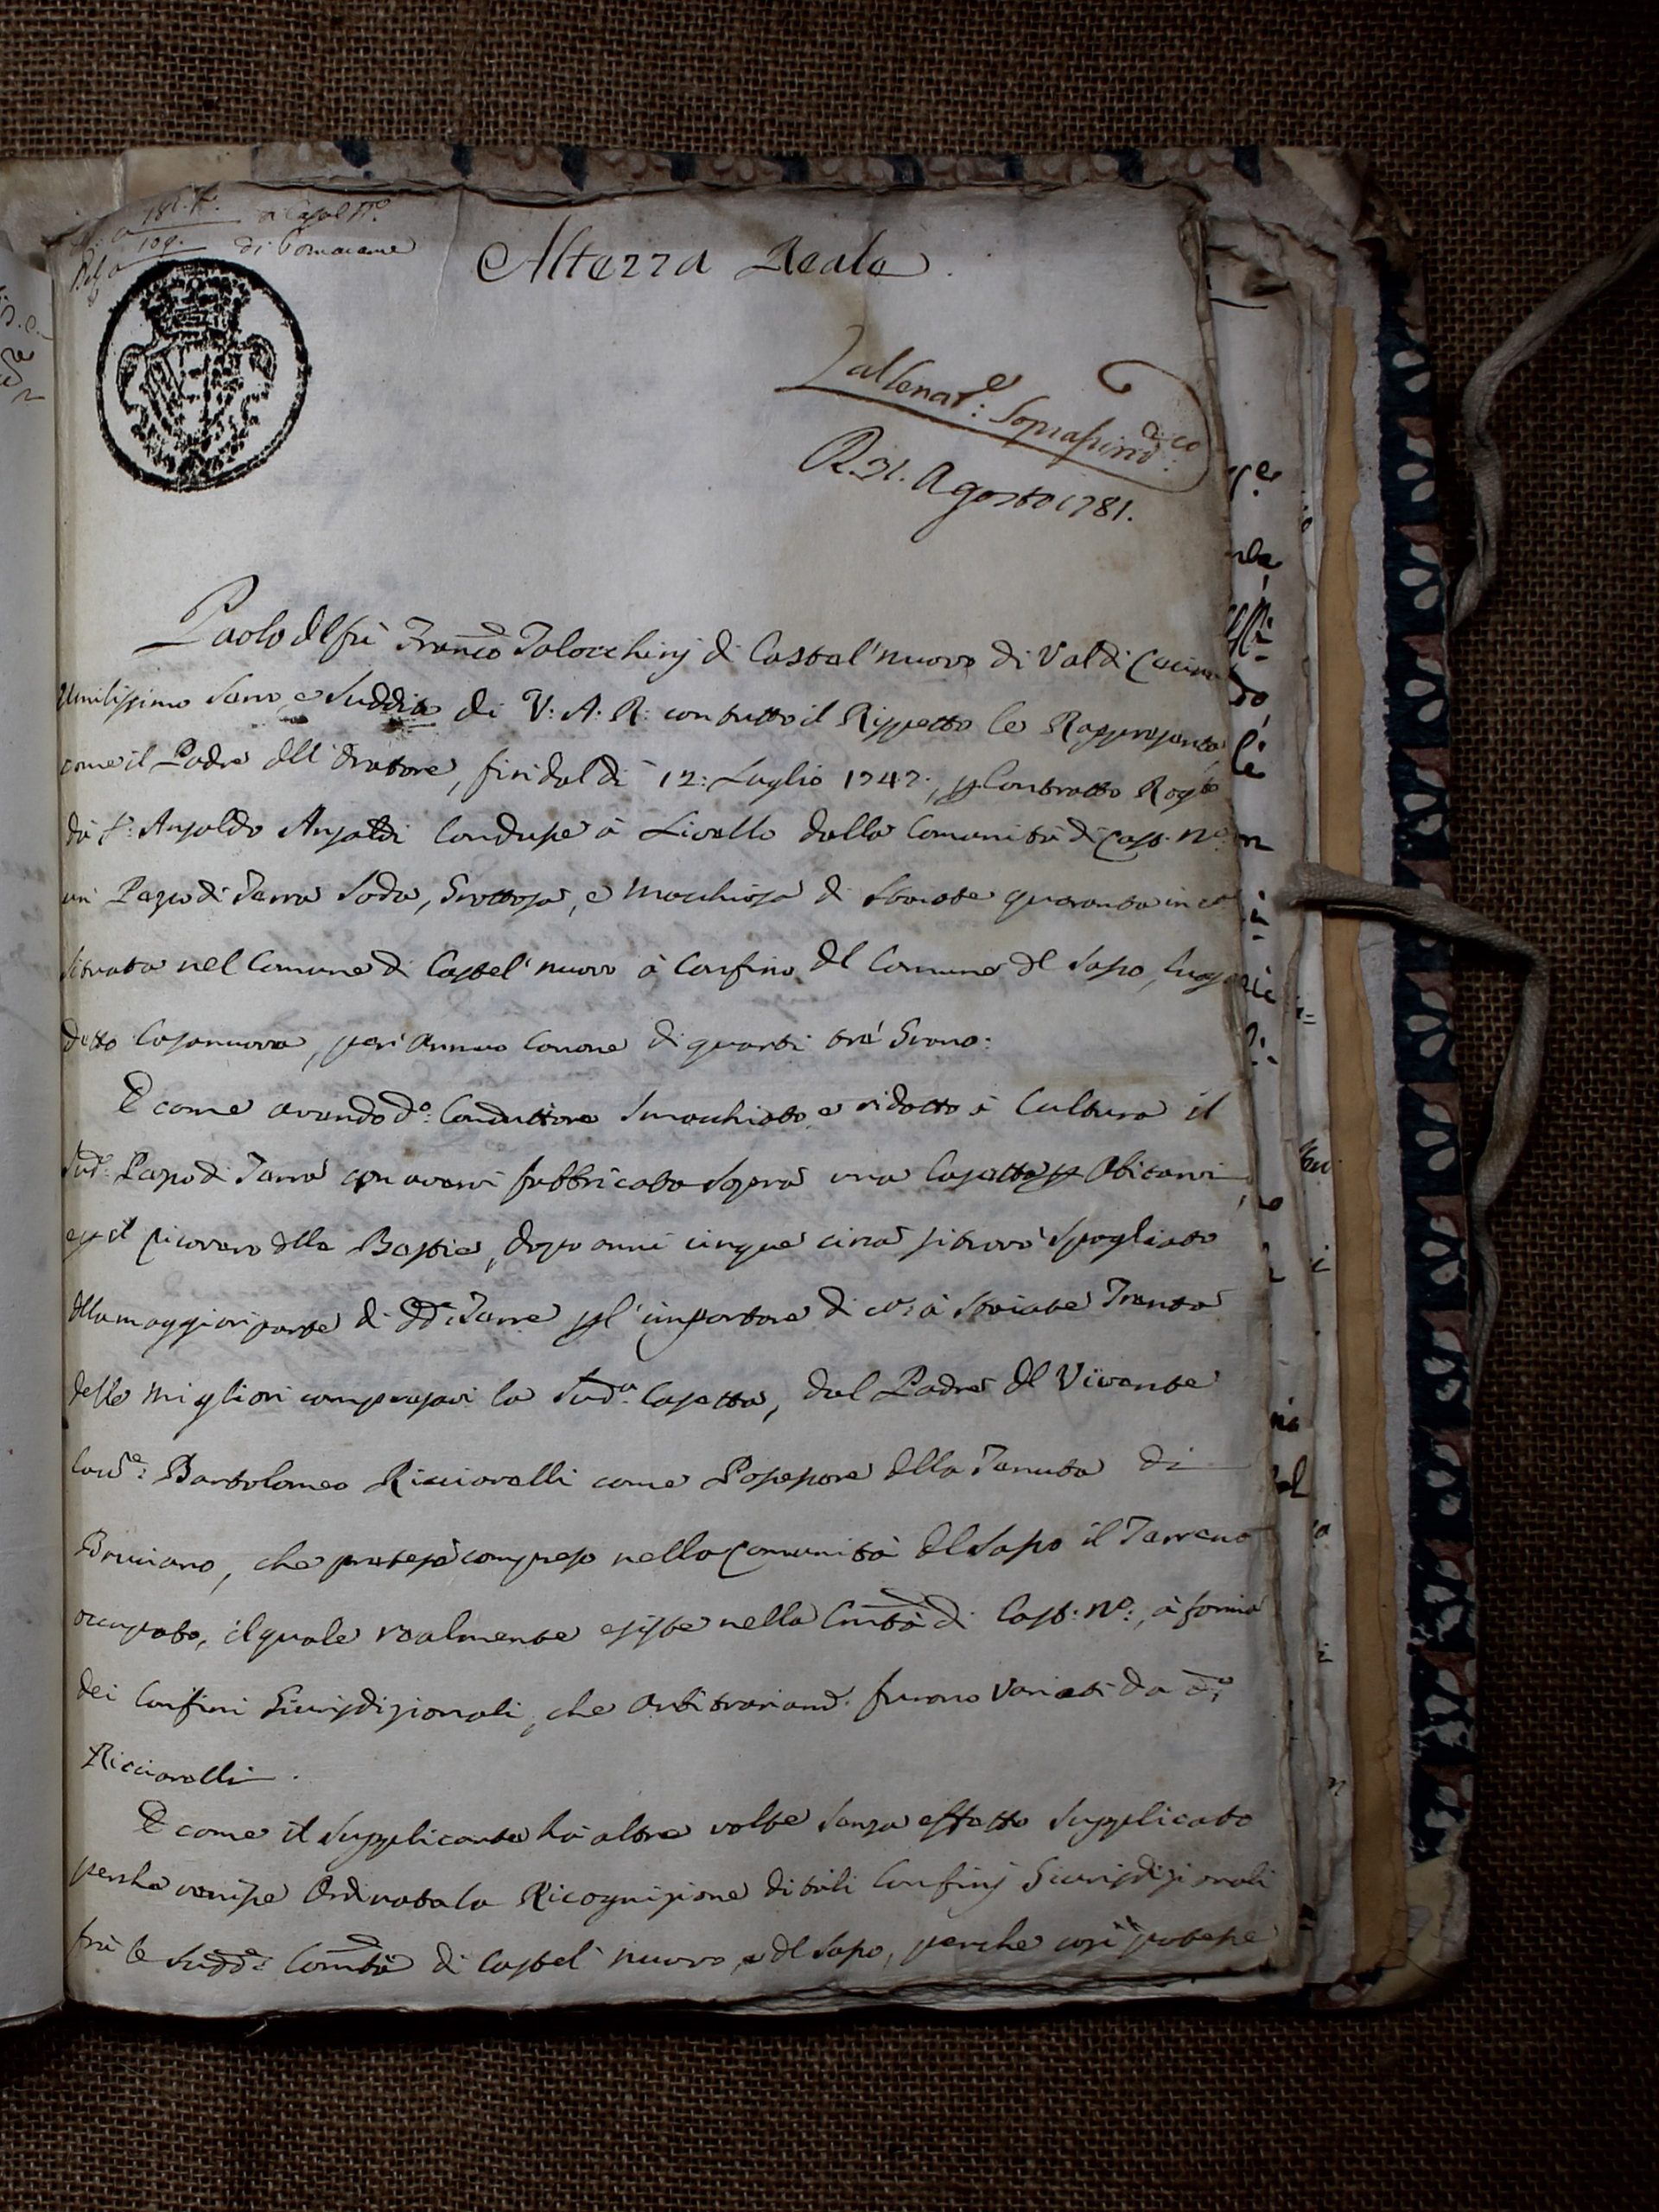 Altezza Reale
al Senat.e: Soprasind.co
R. 31. Agosto 1781.
Paolo del fù Fran.co Talocchinj di Castel'nuovo di Val di Cecina
Umilissimo Servo, e Suddito di V: A: R: con tutto il Rispetto le Rappresenta
come il Padre dell'Oratore, fin dal dì 12: Luglio 1747., p Contratto Rog.to
dà S: Ansaldo Ansaldi Condusse à Livello dalla Comunità di Cast. N.o
un Pezzo di Terra Soda, Grottosa, e Macchiosa di Staiate quaranta in c.a
situata nel Comune di Castel'nuovo à Confino del Comune del Sasso, luogo
detto Casanuova, per annuo Canone di quarti trè Grano:
E come avendo d.o: Conduttore Smacchiato, e ridotto à Cultura il
Sud.o: Pezzo di Terra con avervi fabbricato sopra una Casetta p Abitarvi,
e p il ricovero delle Bestie, doppo anni cinque circa si trovò Spogliato
della maggior parte di dd.e Terre p l'importare di c.a à Staiate Trenta
delle migliori compresavi la Sud.a Casetta, dal Padre del Vivente
Cav.e: Bartolomeo Ricciarelli come Possessore della Tenuta di
Bruciano, che pretese compreso nella Comunità del Sasso il Terreno
occupato, il quale realmente esiste nella Cmtà di Cast: N.o:, à forma
dei Confini Giurisdizionali, che arbitrariam.e furono Variati da d.o
Ricciarelli.
E come il Supplicante hà altre volte senza effetto Supplicato
perche venisse Ordinata la Ricognizione di tali Confinj Giurisdizionali
frà le Sudd.e: Comtà di Castel'nuovo, e del Sasso, perche così potesse